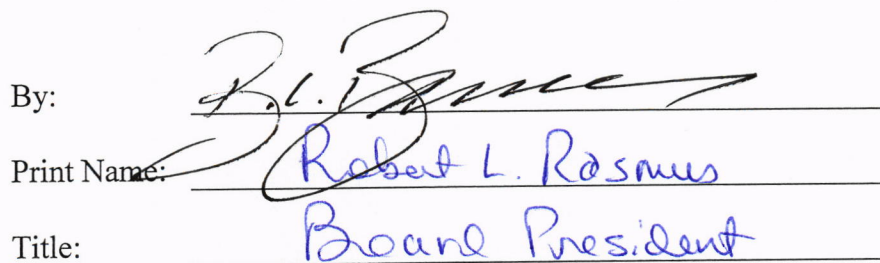 By: R. L. Rasmus
Print Name: Robert L. Rasmus
Title: Board President